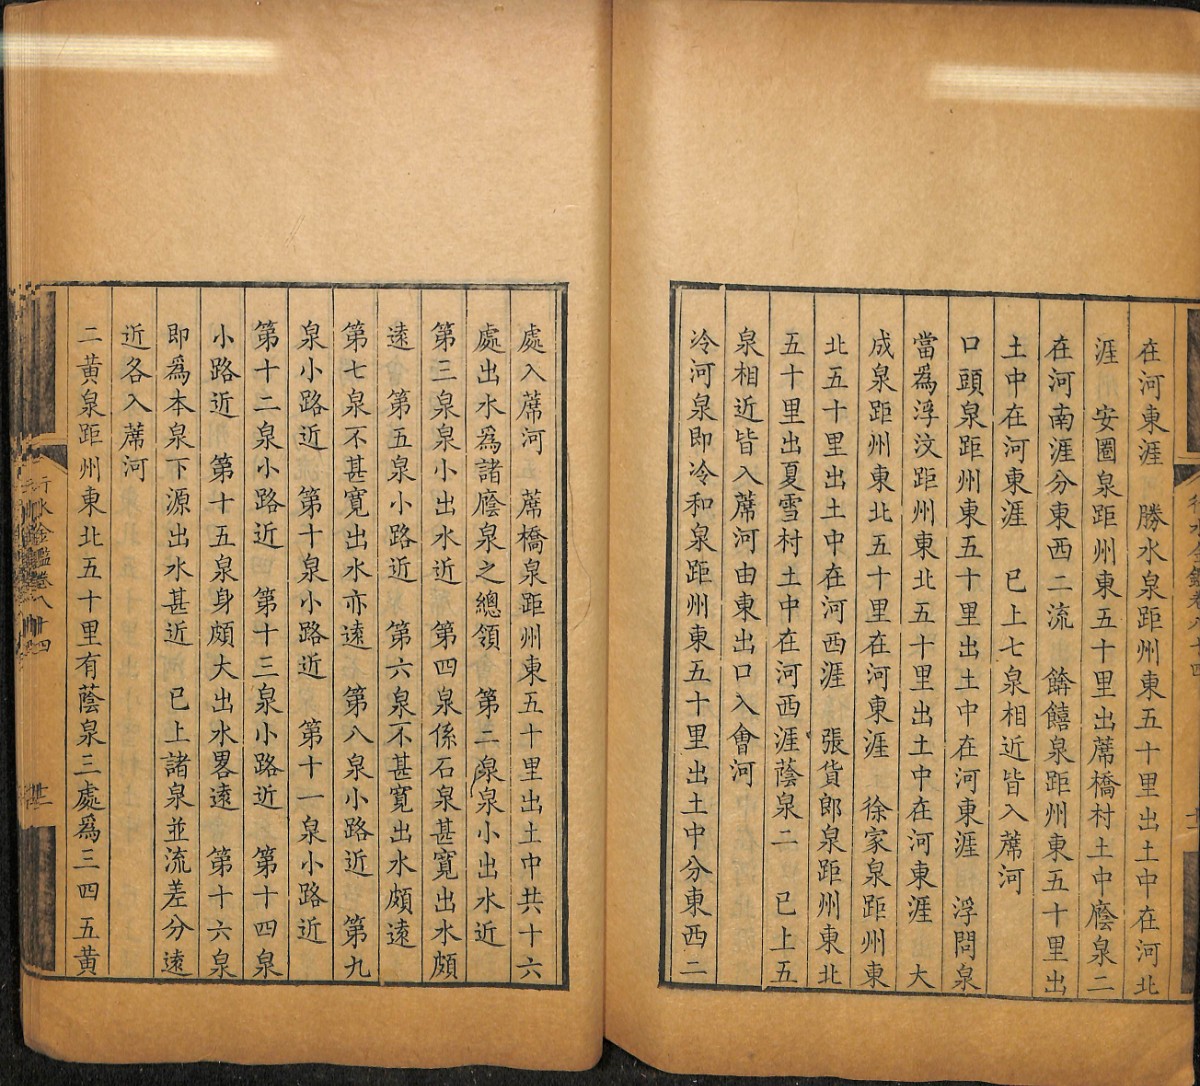 在河東涯　勝水泉距州東五十里出土中在河北
涯　安圈泉距州東五十里出蓆橋村土中廕泉二
在河南涯分東西二流　餴饎泉距州東五十里出
土中在河東涯　已上七泉相近皆入蓆河
口頭泉距州東五十里出土中在河東涯　浮問泉
當為浮汶距州東北五十里出土中在河東涯　大
成泉距州東北五十里在河東涯　徐家泉距州東
北五十里出土中在河西涯　張貨郎泉距州東北
五十里出夏雪村土中在河西涯蔭泉二　已上五
泉相近皆入蓆河由東出口入會河
冷河泉即冷和泉距州東五十里出土中分東西二
處入蓆河　蓆橋泉距州東五十里出土中共十六
處出水爲諸廕泉之總領　第二泉泉小出水近
第三泉泉小出水近　第四泉係石泉甚寬出水頗
遠　第五泉小路近　第六泉不甚寬出水頗遠
第七泉不甚寬出水亦遠　第八泉小路近　第九
泉小路近　第十泉小路近　第十一泉小路近
第十二泉小路近　第十三泉小路近　第十四泉
小路近　第十五泉身頗大出水畧遠　第十六泉
即爲本泉下源出水甚近　已上諸泉並流差分遠
近各入蓆河
二黃泉距州東北五十里有蔭泉三處爲三四五黃
行水金鑑卷八十四